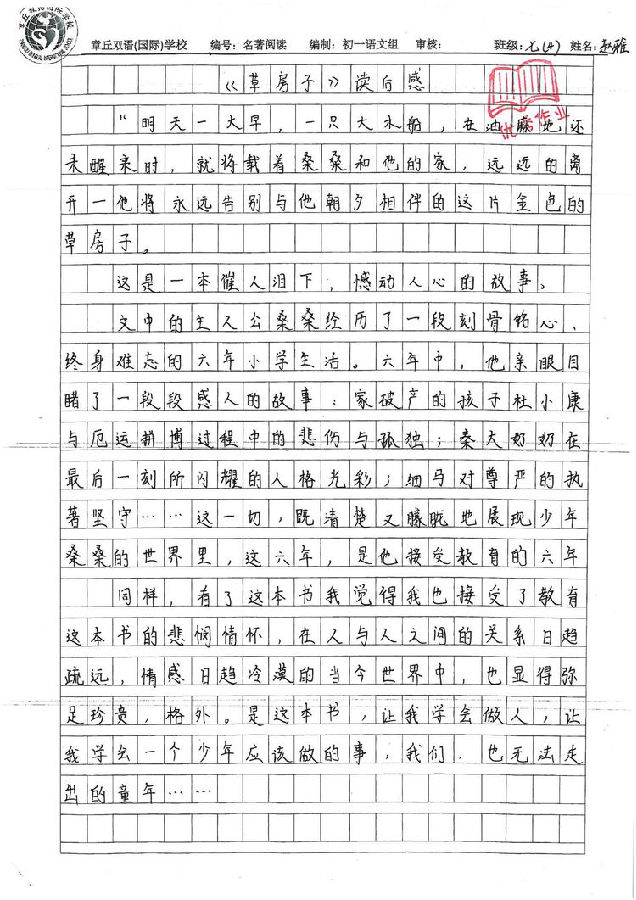 章丘双语(国际)学校 编号：名著阅读 编制：初一语文组 审核： 班级：七(4) 姓名：赵雅
《草房子》读后感
优秀作业
“明天一大早，一只大木船，在油麻地还
未醒来时，就将载着桑桑和他的家，远远的离
开一他将永远告别与他朝夕相伴的这片金色的
草房子。
这是一本催人泪下，憾动人心的故事。
文中的主人公桑桑经历了一段刻骨铭心、
终身难忘的六年小学生活。六年中，他亲眼目
睹了一段段感人的故事：家破产的孩子杜小康
与厄运拼博过程中的悲伤与孤独；秦大奶奶在
最后一刻所闪耀的人格光彩；细马对尊严的执
著坚守……这一切，既清楚又朦胧地展现少年
桑桑的世界里，这六年，是他接受教育的六年
同样，有了这本书我觉得我也接受了教育
这本书的悲悯情怀，在人与人之间的关系日趋
疏远，情感日趋冷漠的当今世界中，也显得弥
足珍贵，格外。是这本书，让我学会做人，让
我学会一个少年应该做的事，我们，也无法走
出的童年……